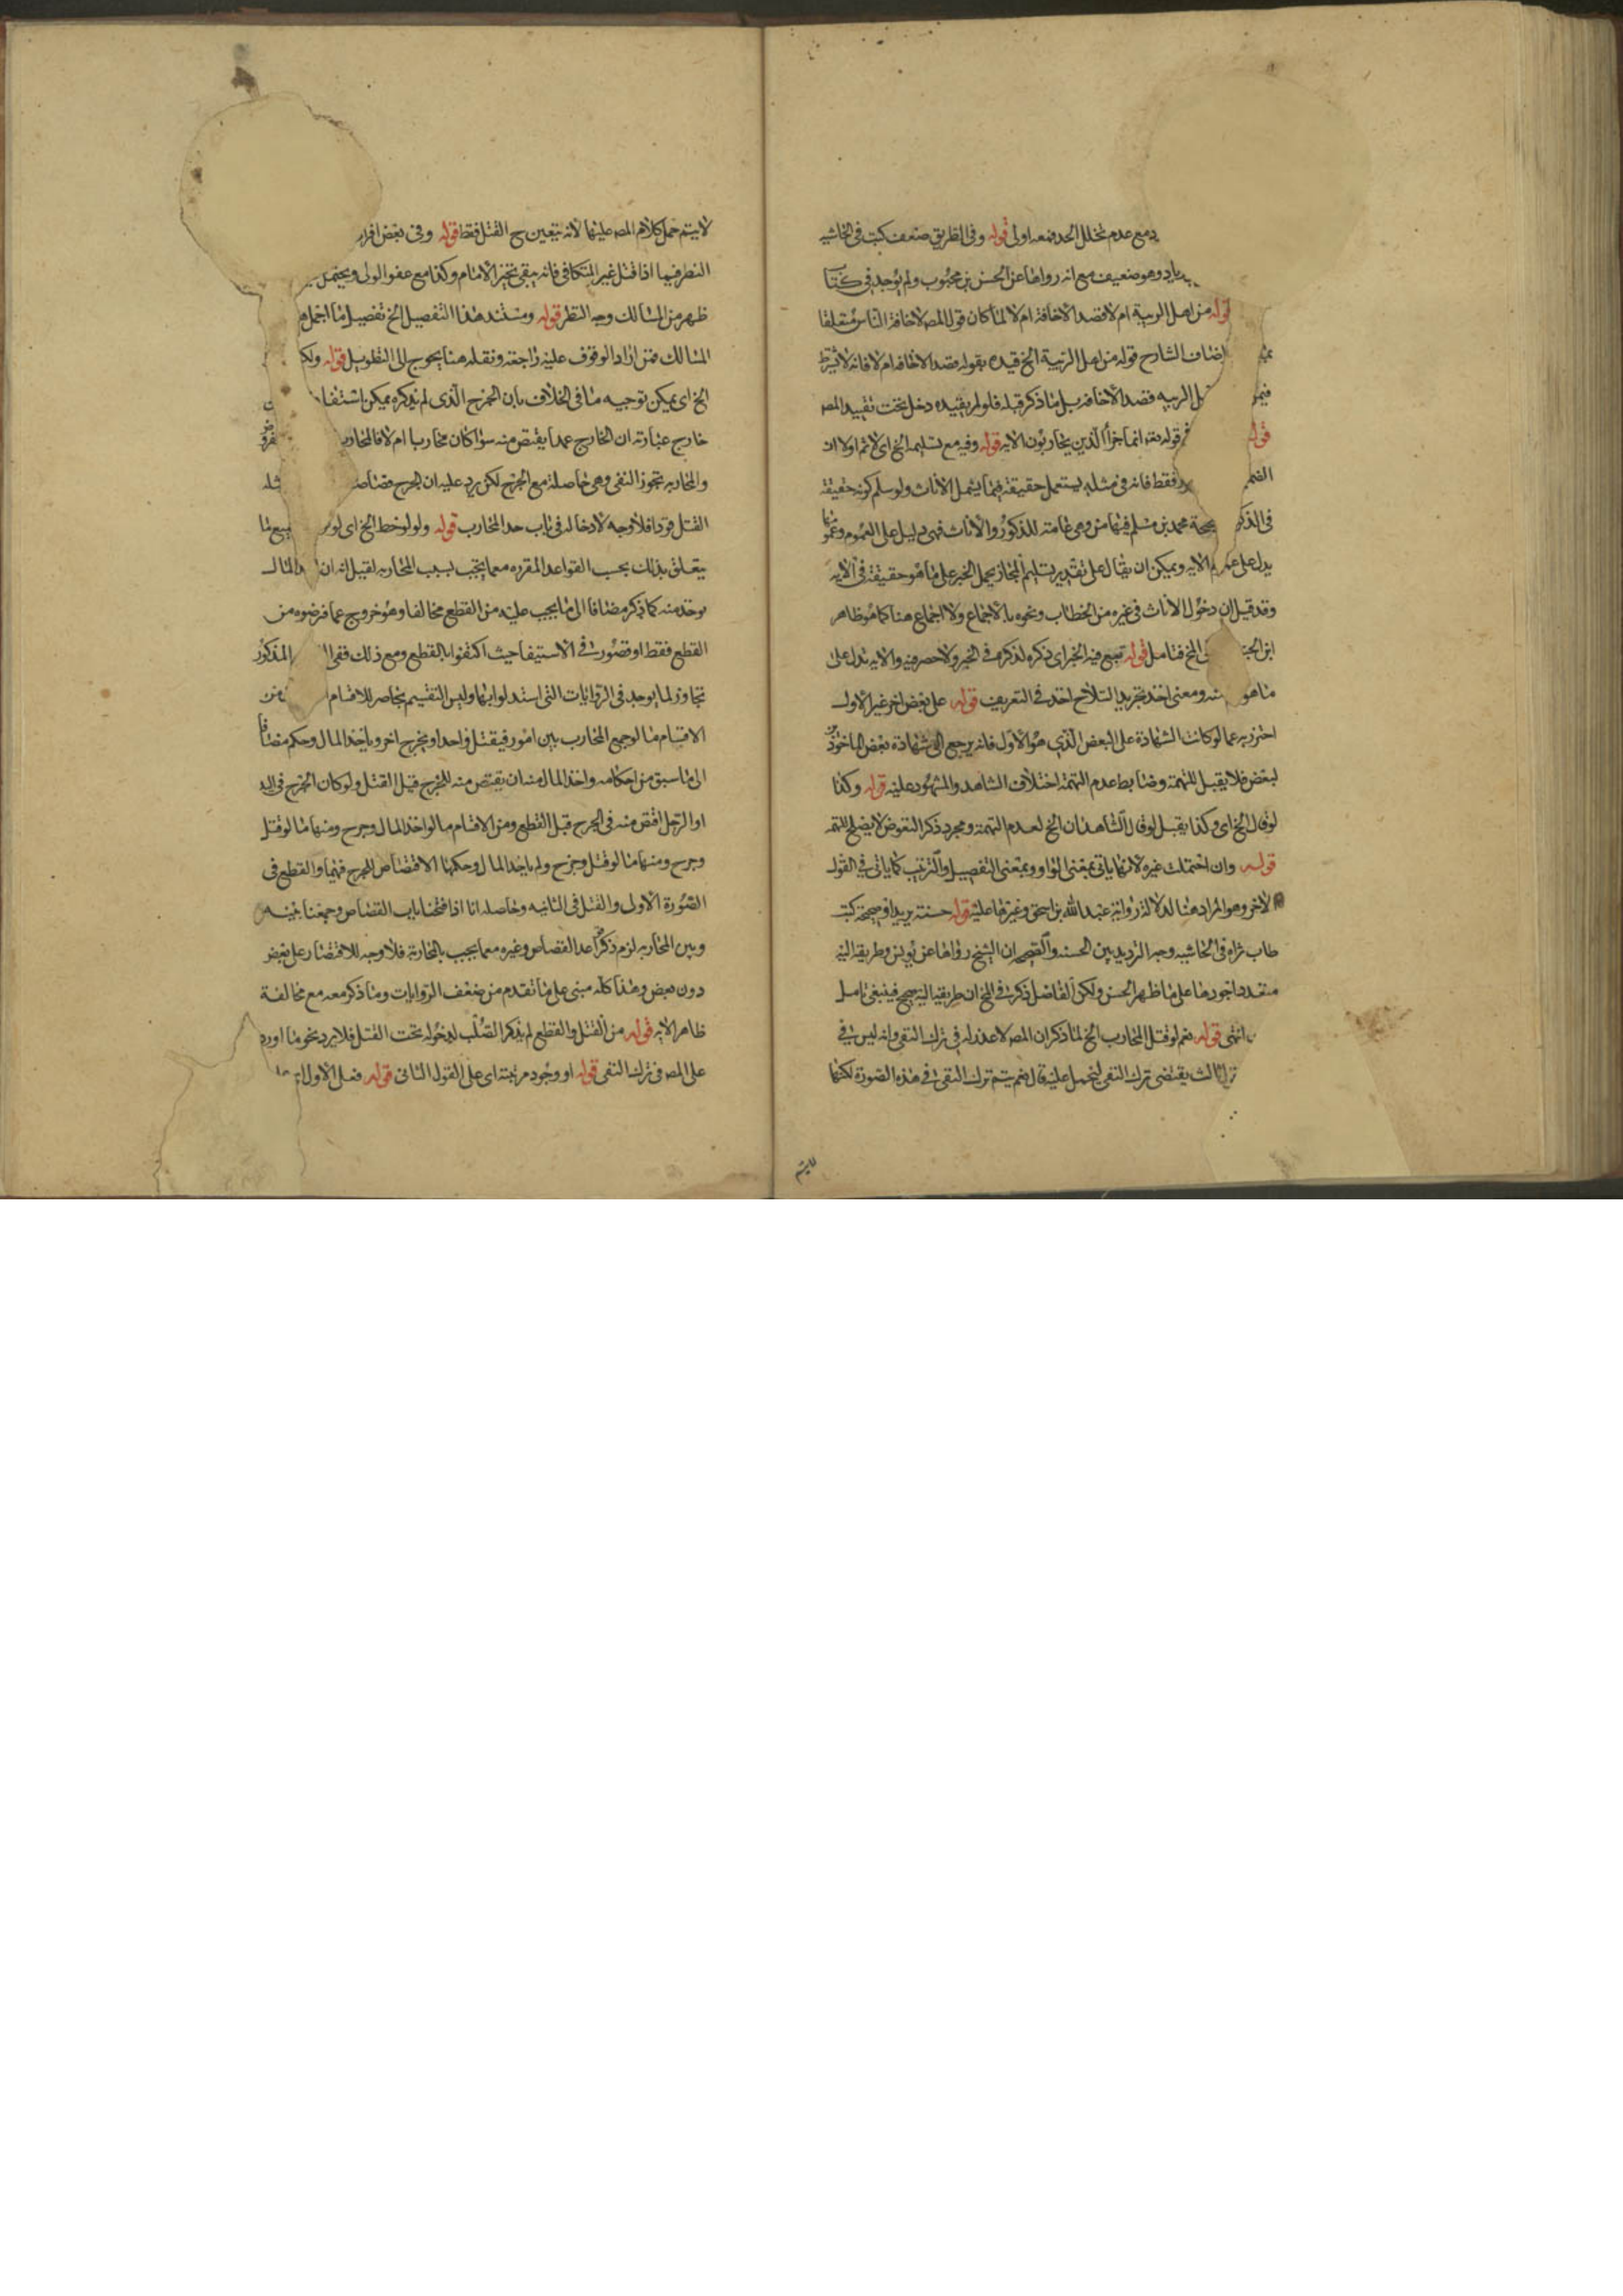 مع عدم تخلل الحد فمعه اولى قوله وفى الطريق ضعف كتب فى الحاشيه
زياد وهو ضعيف مع انه رواها عن الحسن بن محبوب ولم يوجد فى كتا
قوله من اهل الريبة ام لا قصد الاخافة ام لا لما كان قول المص لاخافة الناس متعلقا
اضاف الشارح قوله من اهل الريبة الخ قيده بقوله قصد الاخافه ام لا فانه لا يشترط
الريبه قصد الاخافه بل ما ذكر قبله فلو لم يقيده دخل تحت تقييد المص
قوله قوله تعه انما جزاؤا الذين يحاربون الايه قوله وفيه مع تسليمه الخ اى لا ثم اولا ان
الضم فقط فانه فى مثله يستعمل حقيقة فيما يشمل الاناث ولو سلم كونه حقيقة
فى الذكو محمد بن مسلم فيها من وهى عامة للذكور والاناث فهى دليل على العموم وعموما
يدل على الايه ويمكن ان يقال على تقدير تسليم المجاز يحمل الخبر على ما هو حقيقة فى الايه
وقد قيل ان دخول الاناث فى غيره من الخطاب ونحوه بالاجماع ولا اجماع هنا كما هو ظاهر
ابن الجنيد الخ فتامل قوله تتبع فيه الخبر اى ذكره لذكره فى الخبر ولا حصر فيه والايه تدل على
ما هو منه ومعنى اخذ تجريد السلاح اخذه فى التعريف قوله على بعض اخر غير الاول
احترز به عما لو كانت الشهادة على البعض الذى هو الاول فانه يرجع الى شهادة بعض الماخوذين
لبعض فلا يقبل للتهمة وضابط عدم التهمة اختلاف الشاهد والمشهود عليه قوله وكذا
لو قال الخ اى وكذا يقبل لو قال الشاهدان الخ لعدم التهمة ومجرد ذكر التعرض لا يصلح للتهمه
قوله وان احتملت غيره لانها ياتى بمعنى الواو وبمعنى التفصيل والترتيب كما ياتى فى القول
الاخر وهو المراد هنا لدلالة رواية عبد الله بن اسحق وغيرها عليه قوله حسنة بريد او صحيحة كتب
طاب ثراه فى الحاشيه وجه الترديد بين الحسنه والصحيحه ان الشيخ رواها عن يونس وطريقه اليه
متعدد اجودها على ما ظهر الحسن ولكن الفاضل ذكر فى الخ ان طريقه اليه صحيح فينبغى تامل
انتهى قوله نعم لو قتل المحارب الخ لما ذكر ان المص لا عذر له فى ترك النفى وانه ليس فى
ثالث يقتضى ترك النفى ليحمل عليه قال نعم يتم ترك النفى فى هذه الصورة لكنها
لا يتم
لا يتم حمل كلام المص عليها لانه يتعين ح القتل فقط قوله وفى بعض افراد
النظر فيما اذا قتل غير المتكافى فانه يبقى تخير الامام وكذا مع عفو الولى ويحتمل
ظهر من المسالك وجه النظر قوله ومستند هذا التفصيل الخ تفصيل ما اجمل
المسالك فمن اراد الوقوف عليه راجعه ونقله هنا يحوج الى التطويل قوله ولكن
الخ اى يمكن توجيه ما فى الخلاف بان الجرح الذى لم يذكره يمكن استفاد
خارج عبارته ان الجارح عمدا يقتص منه سواء كان محاربا ام لا فالمحارب
والمحاربه تجوز النفى وهى حاصلة مع الجرح لكن يرد عليه ان الجرح قصاصا مثله
القتل قودا فلا وجه لادخاله فى باب حد المحارب قوله ولو لوحظ الخ اى لو جميع ما
يتعلق بذلك بحسب القواعد المقرره مع ما يجب بسبب المحاربه لقيل انه ان المال
يوخذ منه كما ذكر مضافا الى ما يجب عليه من القطع مخالفا وهو خروج عما فرضوه من
القطع فقط او قصورت فى الاستيفا حيث اكتفوا بالقطع ومع ذلك ففى المذكور
تجاوز لما يوجد فى الروايات التى استدلوا بها وليس التقسيم بحاصر للاقسام من
الاقسام ما لو جمع المحارب بين امور فيقتل واحدا ويجرح اخر وياخذ المال وحكم مضافا
الى ما سبق من احكامه واخذ المال منه ان يقتص منه للجرح قبل القتل ولو كان الجرح فى اليد
او الرجل اقتص منه فى الجرح قبل القطع ومن الاقسام ما لو اخذ المال وجرح ومنها ما لو قتل
وجرح ومنها ما لو قتل وجرح ولم ياخذ المال وحكمها الاقتصاص للجرح فيها والقطع فى
الصورة الاولى والقتل فى الثانيه وحاصله انا اذا فتحنا باب القصاص وجمعنا بينه
وبين المحاربه لزم ذكر ما عدا القصاص وغيره مع ما يجب بالمحاربة فلا وجه للاقتصار على بعض
دون بعض وهذا كله مبنى على ما تقدم من ضعف الروايات وما ذكر معه مع مخالفة
ظاهر الايه قوله من القتل والقطع لم يذكر الصلب لدخوله تحت القتل فلا يرد نحو ما اورد
على المص فى ترك النفى قوله او وجود مرتبة اى على القول الثانى قوله فعلى الاول